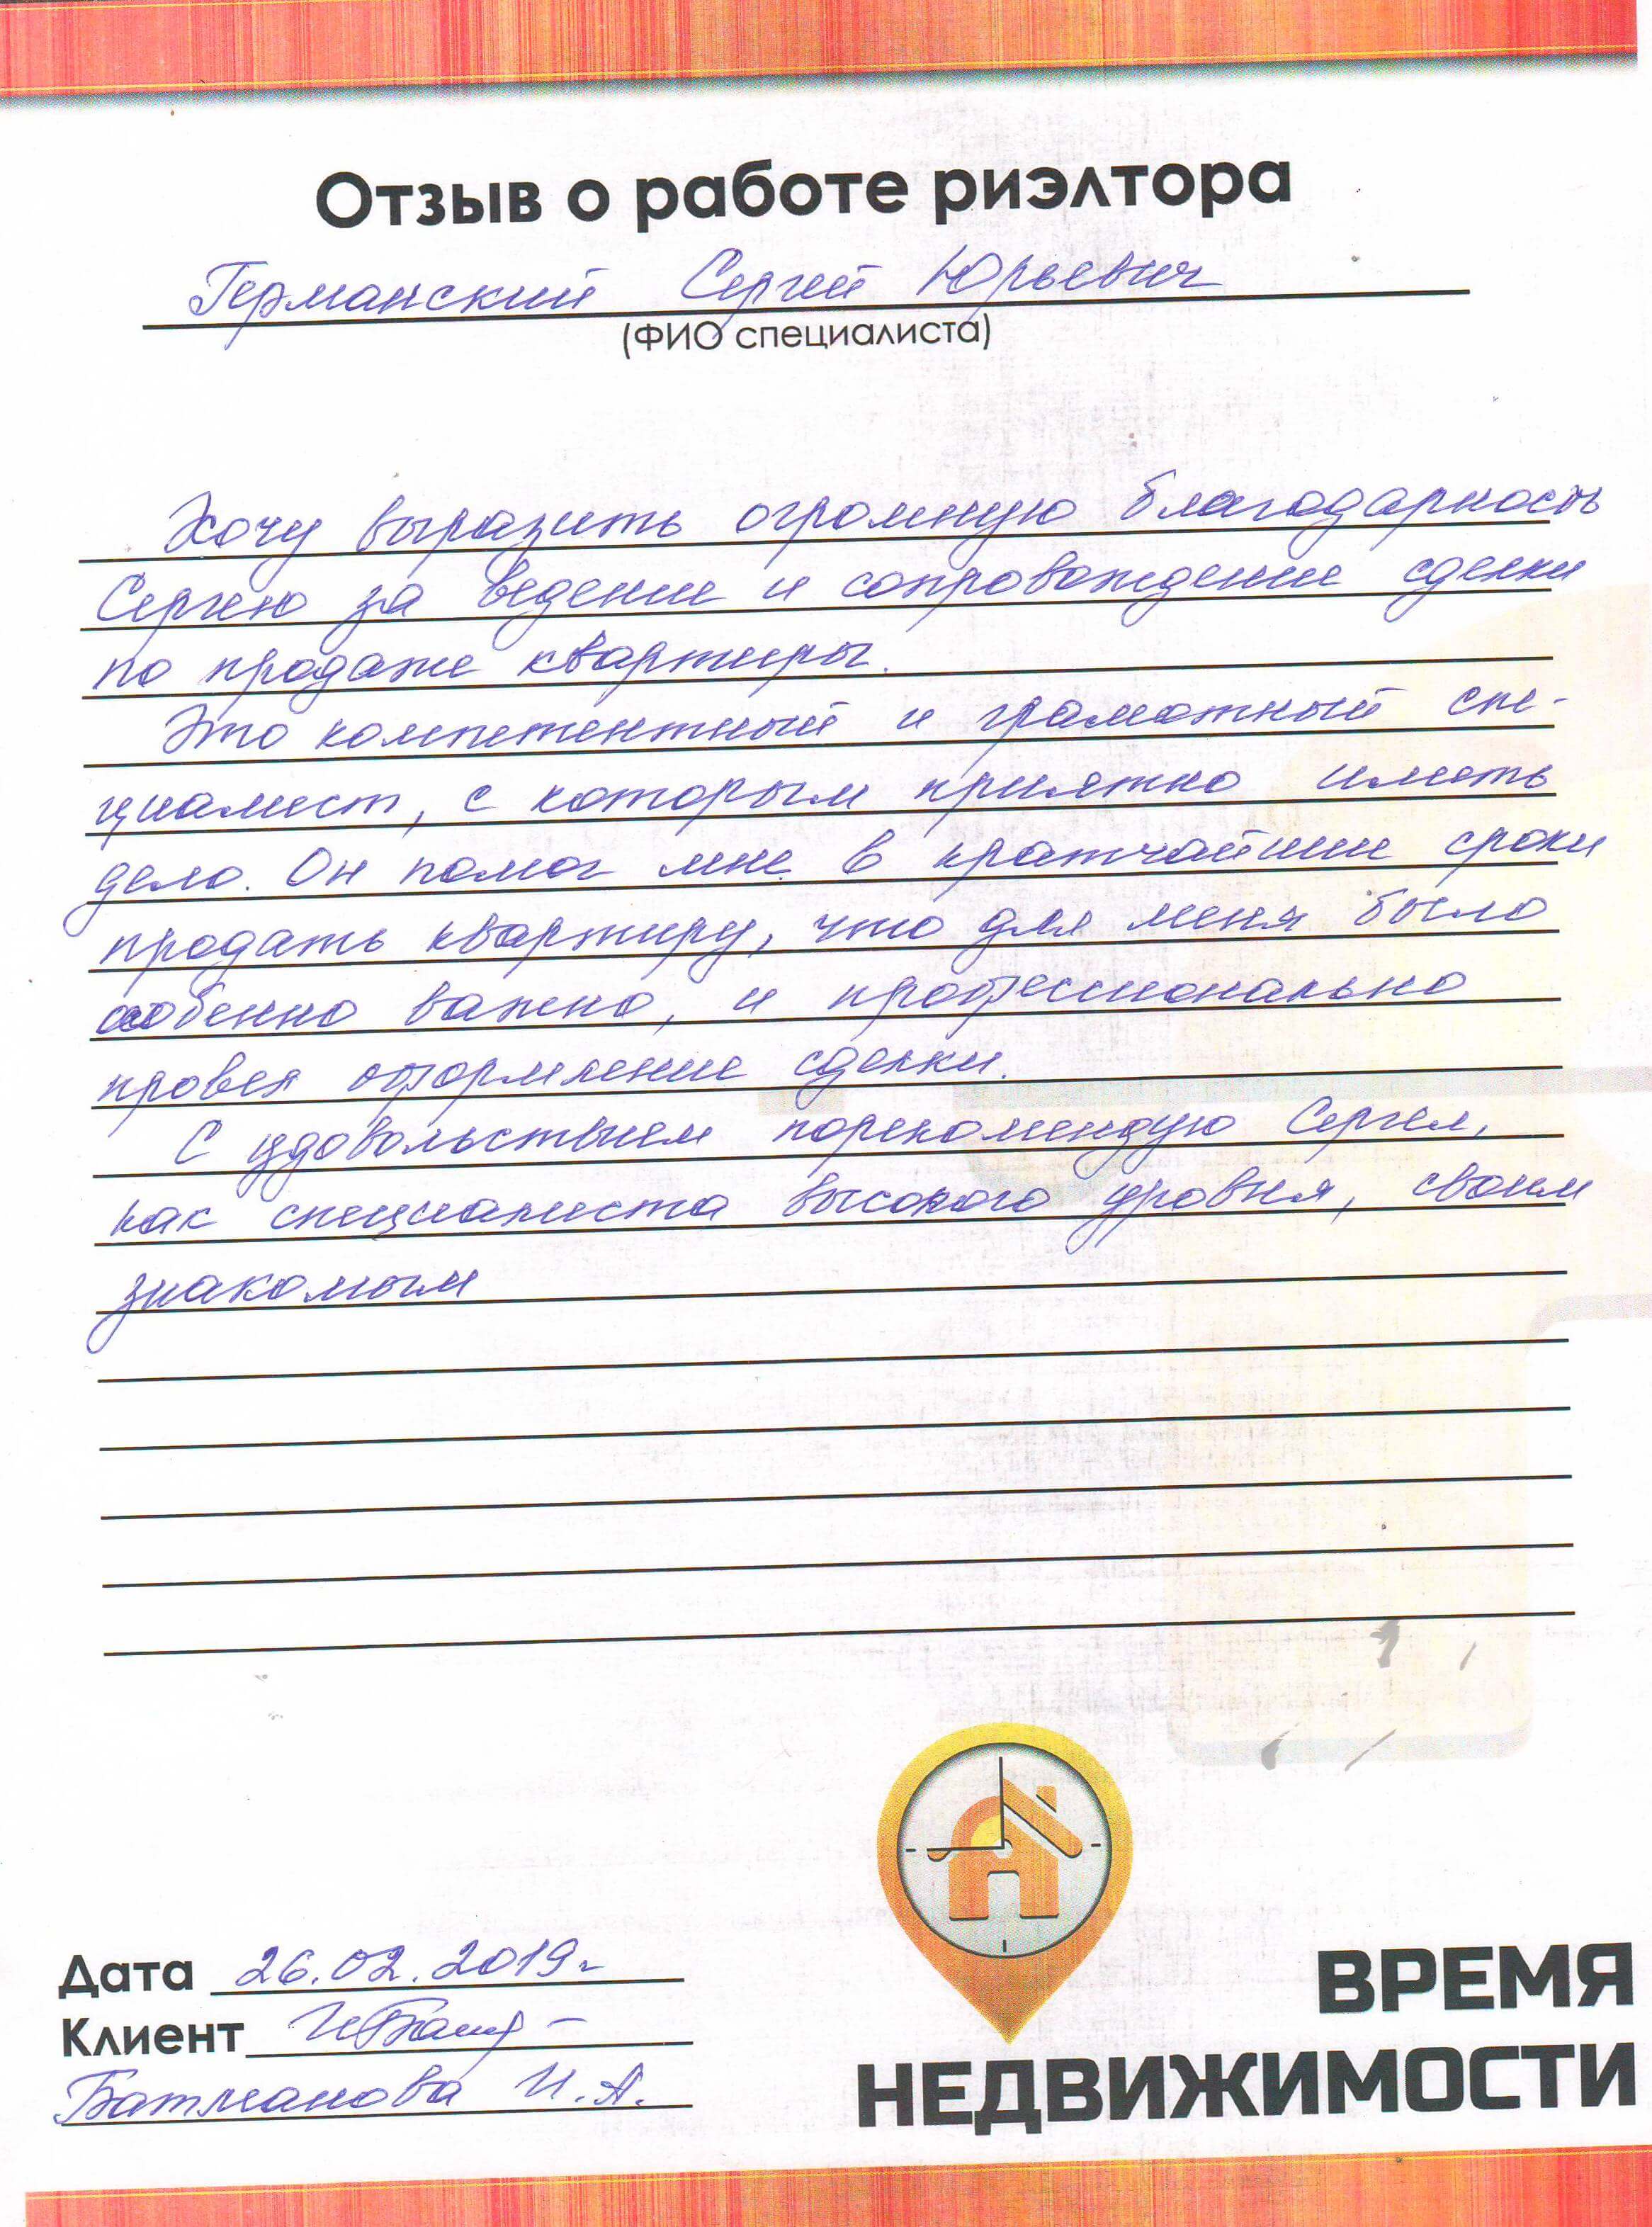 Отзыв о работе риэлтора
Германский Сергей Юрьевич
(ФИО специалиста)
Хочу выразить огромную благодарность
Сергею за ведение и сопровождение сделки
по продаже квартиры.
Это компетентный и грамотный спе-
циалист, с которым приятно иметь
дело. Он помог мне в кратчайшие сроки
продать квартиру, что для меня было
особенно важно, и профессионально
провел оформление сделки.
С удовольствием порекомендую Сергея,
как специалиста высокого уровня, своим
знакомым
Дата 26.02.2019г
Клиент
Батманова И.А.
ВРЕМЯ
НЕДВИЖИМОСТИ